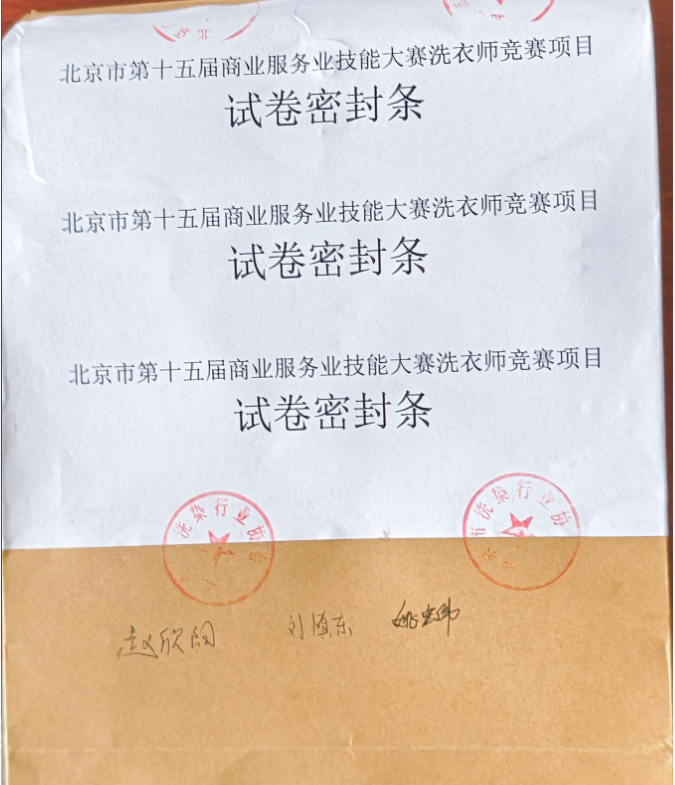 北京市第十五届商业服务业技能大赛洗衣师竞赛项目
试卷密封条
北京市第十五届商业服务业技能大赛洗衣师竞赛项目
试卷密封条
北京市第十五届商业服务业技能大赛洗衣师竞赛项目
试卷密封条
洗染行业协会
市洗染行业协
赵欣阳
刘